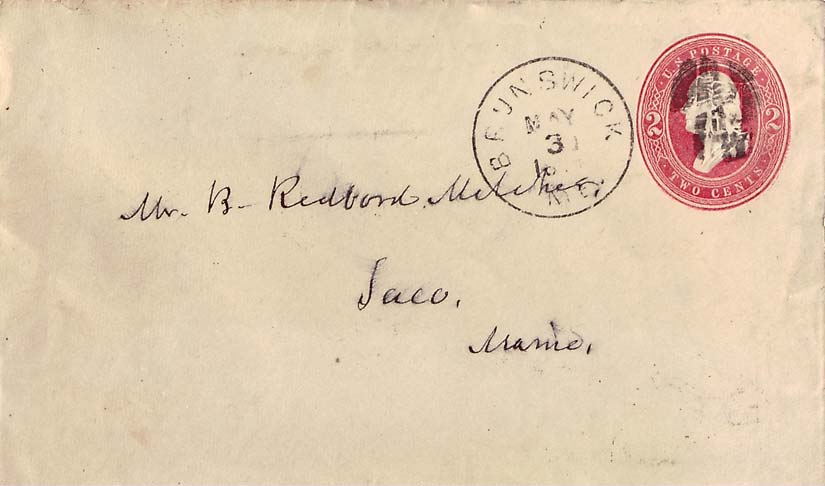 BRUNSWICK
MAY
ME.
U.S. POSTAGE
2 2
TWO CENTS
Mr. B. Redford Melcher,
Saco,
Maine.